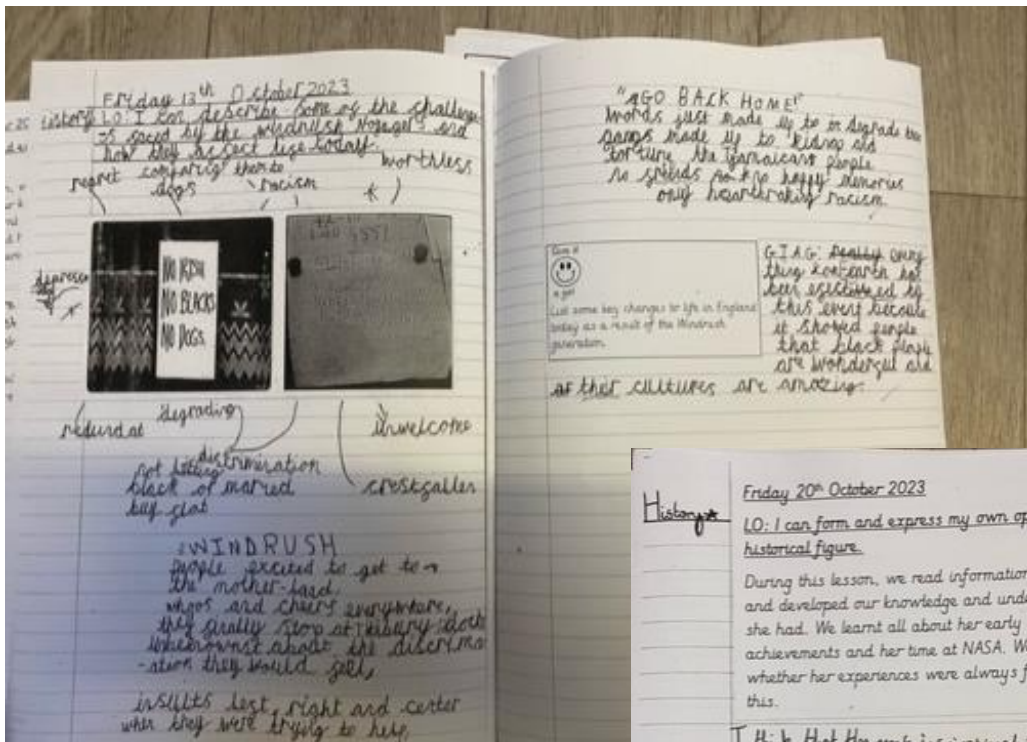 Friday 13th October 2023
History LO: I can describe some of the challeng
-es faced by the windrush Voyagers and
how they affect life today.
regret comparing them to
dogs
racism
worthless
NO IRISH
NO BLACKS
NO DOGS
degrading
unwelcome
discrimination
not letting
black or married
buy flat
crestfallen
WINDRUSH
people excited to get to
the mother-land,
and cheers everywhere,
they finally stop at Tilbury dock
about the discrimin
-ation they would feel,
insults left, right and center
when they were trying to help,
"GO BACK HOME!"
Words just made up to degrade
gangs made up to kidnap and
torture the Jamaican people
no friends no happy memories
only heartbreaking racism.
Give it
a go!
List some key changes to life in England
today as a result of the Windrush
generation.
GIAG: every
thing has
been by
this event because
it showed people
that black people
are wonderful and
their cultures are amazing.
History
Friday 20th October 2023
LO: I can form and express my own op
historical figure.
During this lesson, we read information
and developed our knowledge and unde
she had. We learnt all about her early
achievements and her time at NASA. W
whether her experiences were always f
this.
I think that